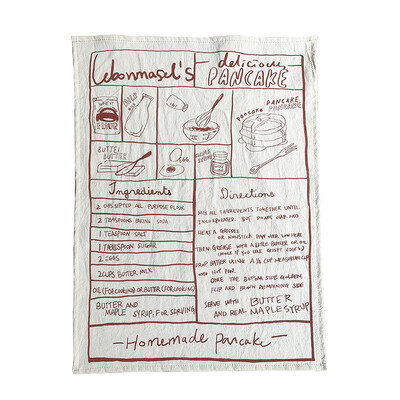 Lebonmasel's
delicious
PANCAKE
FLOUR
MILK
BUTTER
BUTTER
EGG
PANCAKE
pancake
Ingredients
2 CUPS SIFTED ALL PURPOSE FLOUR
2 TEASPOONS BAKING SODA
1 TEASPOON SALT
1 TABLESPOON SUGAR
2 EGGS
2 CUPS BUTTER MILK
OIL (FOR COOKING) OR BUTTER (FOR COOKING)
BUTTER AND
MAPLE SYRUP, FOR SERVING
Directions
MIX ALL INGREDIENTS TOGETHER UNTIL
INCORPORATED, BUT DO NOT OVER MIX
HEAT A GRIDDLE
OR NONSTICK PAN OVER LOW HEAT
THEN GREASE WITH A LITTLE BUTTER OR OIL
(MORE IF YOU LIKE CRISPY EDGES)
DROP BATTER USING A ¼ CUP MEASURING CUP
ONTO HOT PAN
ONCE THE BOTTOM SIDE GOLDEN
FLIP AND BROWN REMAINING SIDE
SERVE WITH BUTTER
AND REAL MAPLE SYRUP
-Homemade Pancake-